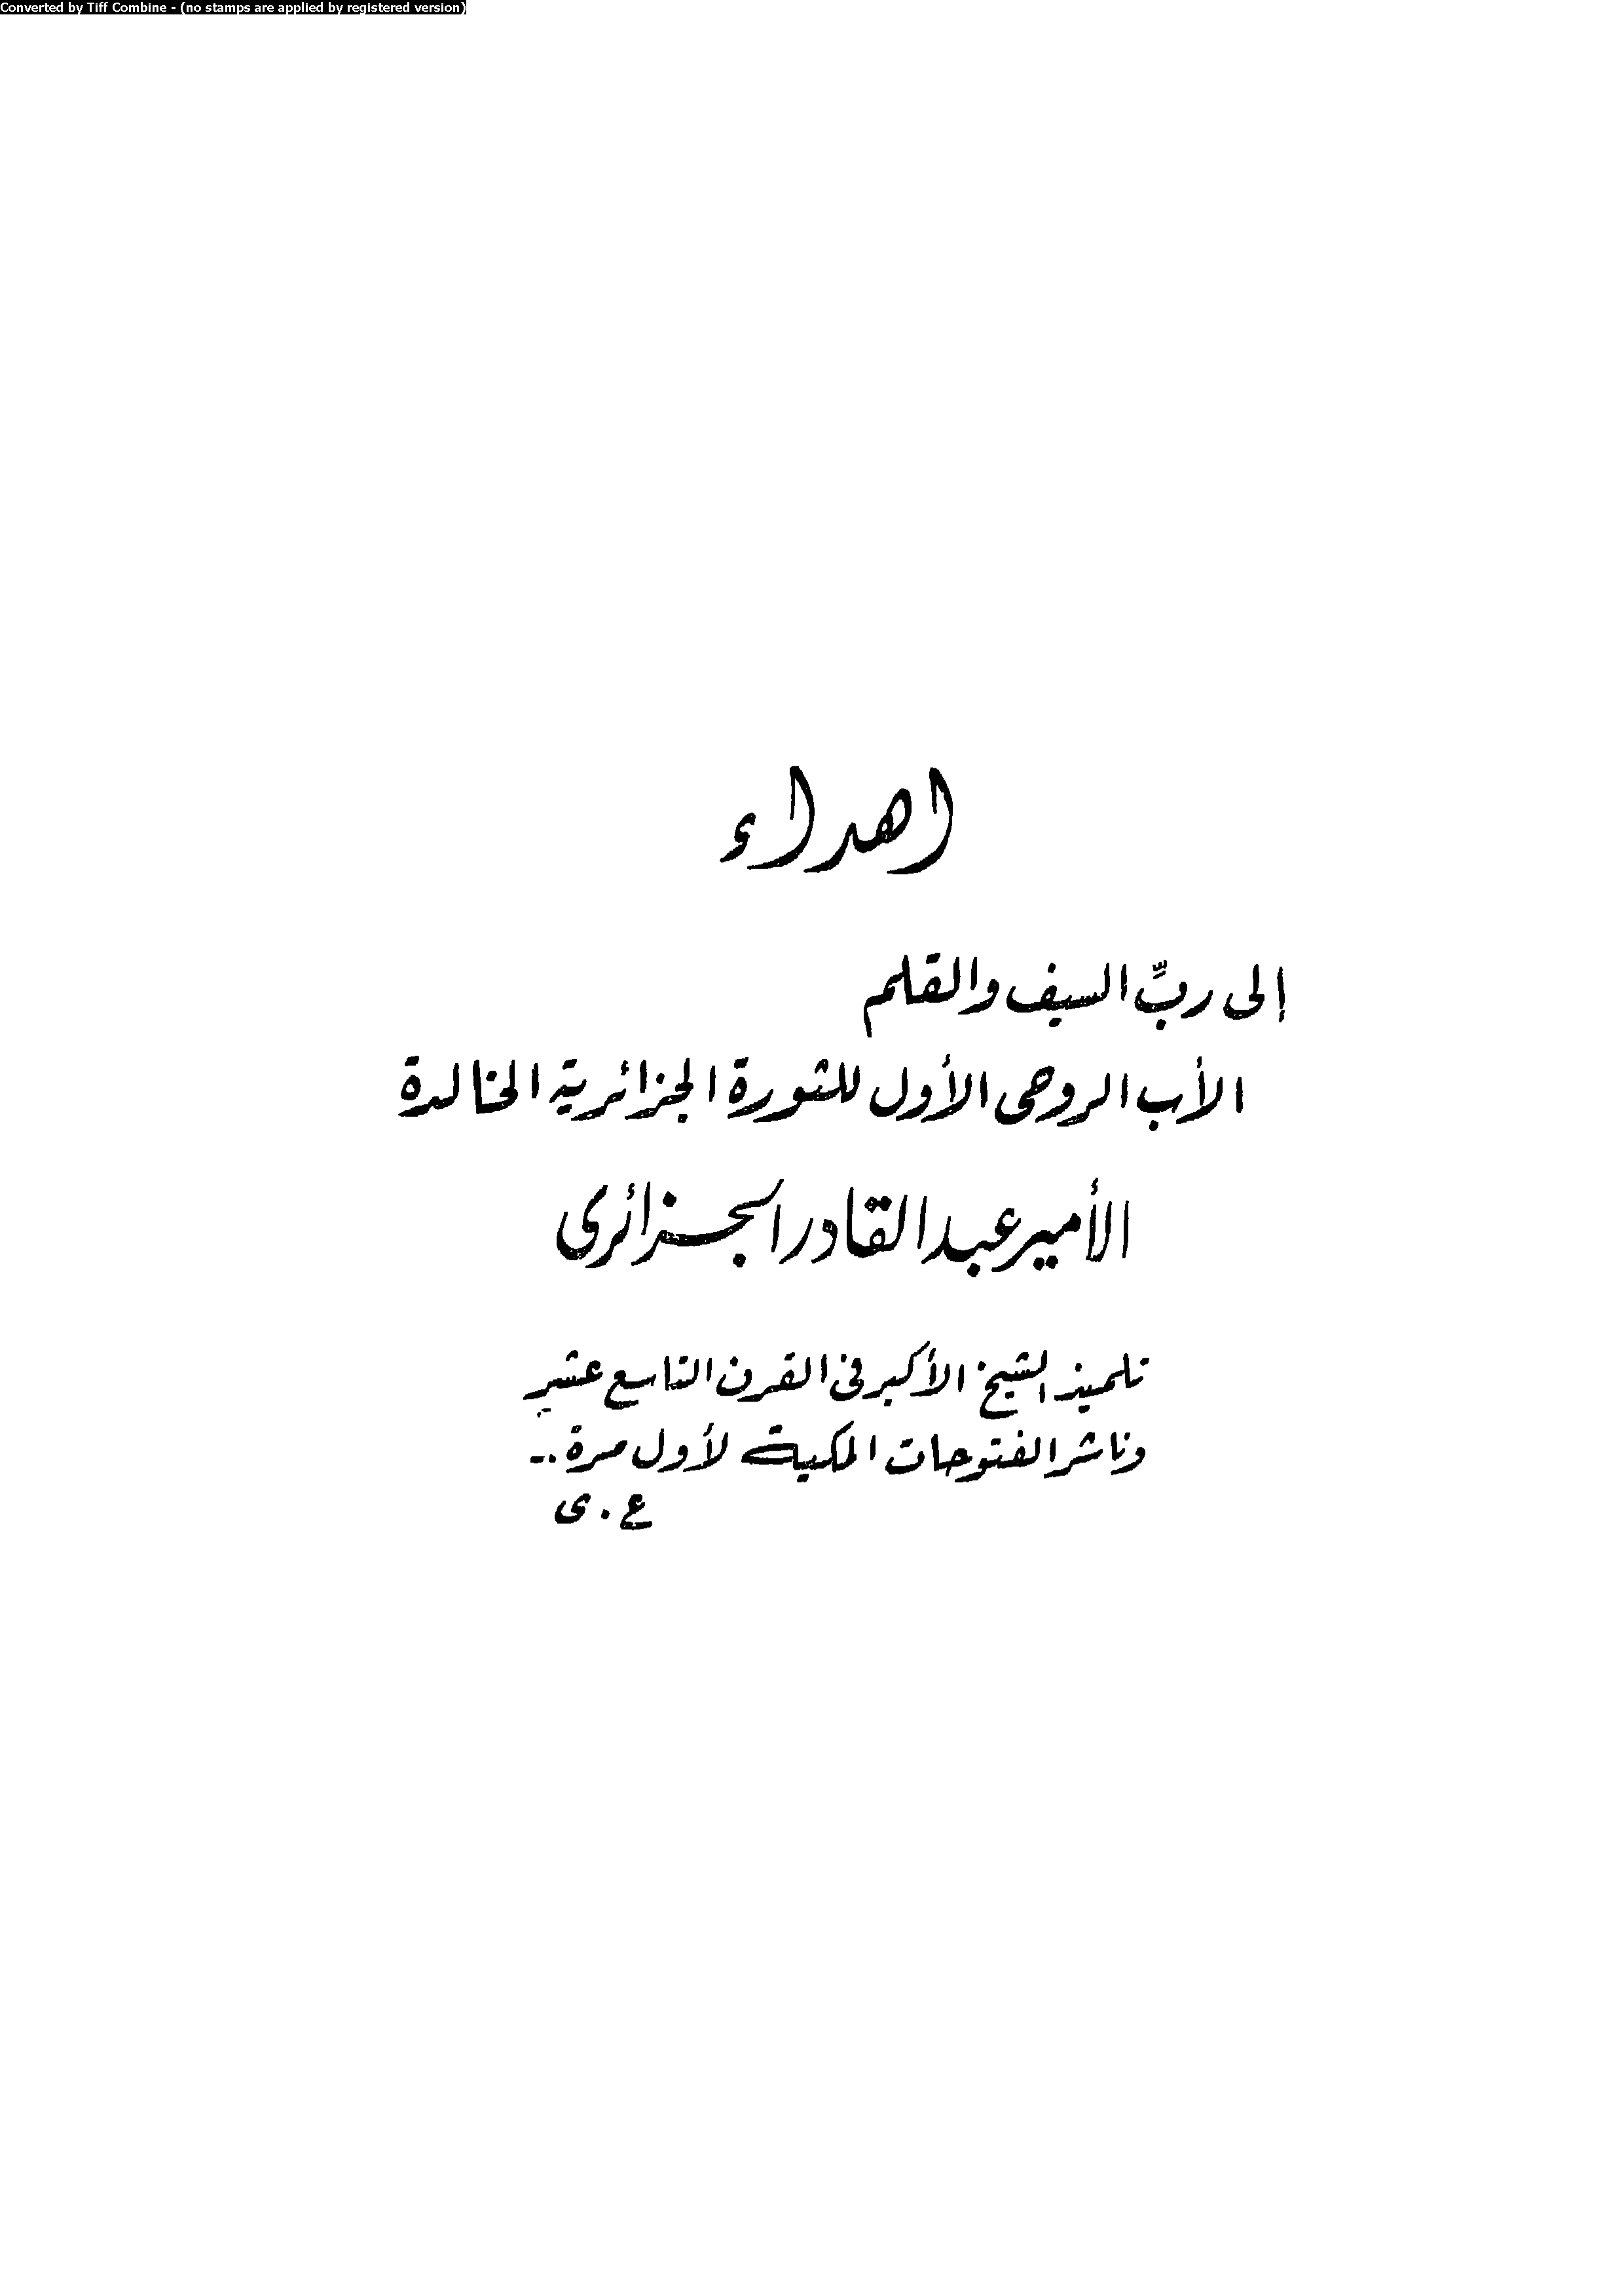 Converted by Tiff Combine - (no stamps are applied by registered version)
اهداء
إلى ربِّ السيف والقلم
الأب الروحى الأول للثورة الجزائرية الخالدة
الأمير عبد القادر الجزائرى
تلميذ الشيخ الأكبر فى القرن التاسع عشر
وناشر الفتوحات المكية لأول مرة ..
ع . ى